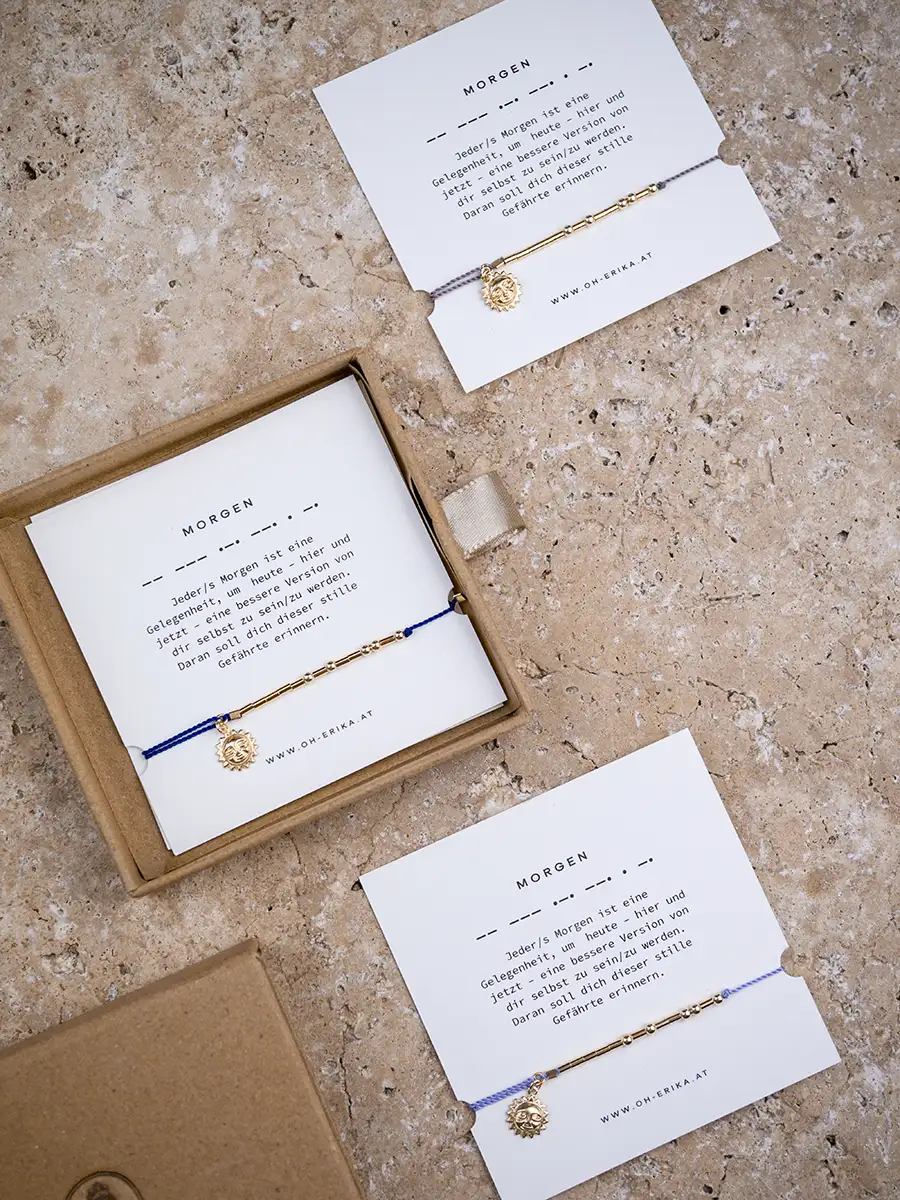 MORGEN
−− −−− ·−· −−· · −·
Jeder/s Morgen ist eine
Gelegenheit, um heute - hier und
jetzt - eine bessere Version von
dir selbst zu sein/zu werden.
Daran soll dich dieser stille
Gefährte erinnern.
WWW.OH-ERIKA.AT
MORGEN
−− −−− ·−· −−· · −·
Jeder/s Morgen ist eine
Gelegenheit, um heute - hier und
jetzt - eine bessere Version von
dir selbst zu sein/zu werden.
Daran soll dich dieser stille
Gefährte erinnern.
WWW.OH-ERIKA.AT
MORGEN
−− −−− ·−· −−· · −·
Jeder/s Morgen ist eine
Gelegenheit, um heute - hier und
jetzt - eine bessere Version von
dir selbst zu sein/zu werden.
Daran soll dich dieser stille
Gefährte erinnern.
WWW.OH-ERIKA.AT